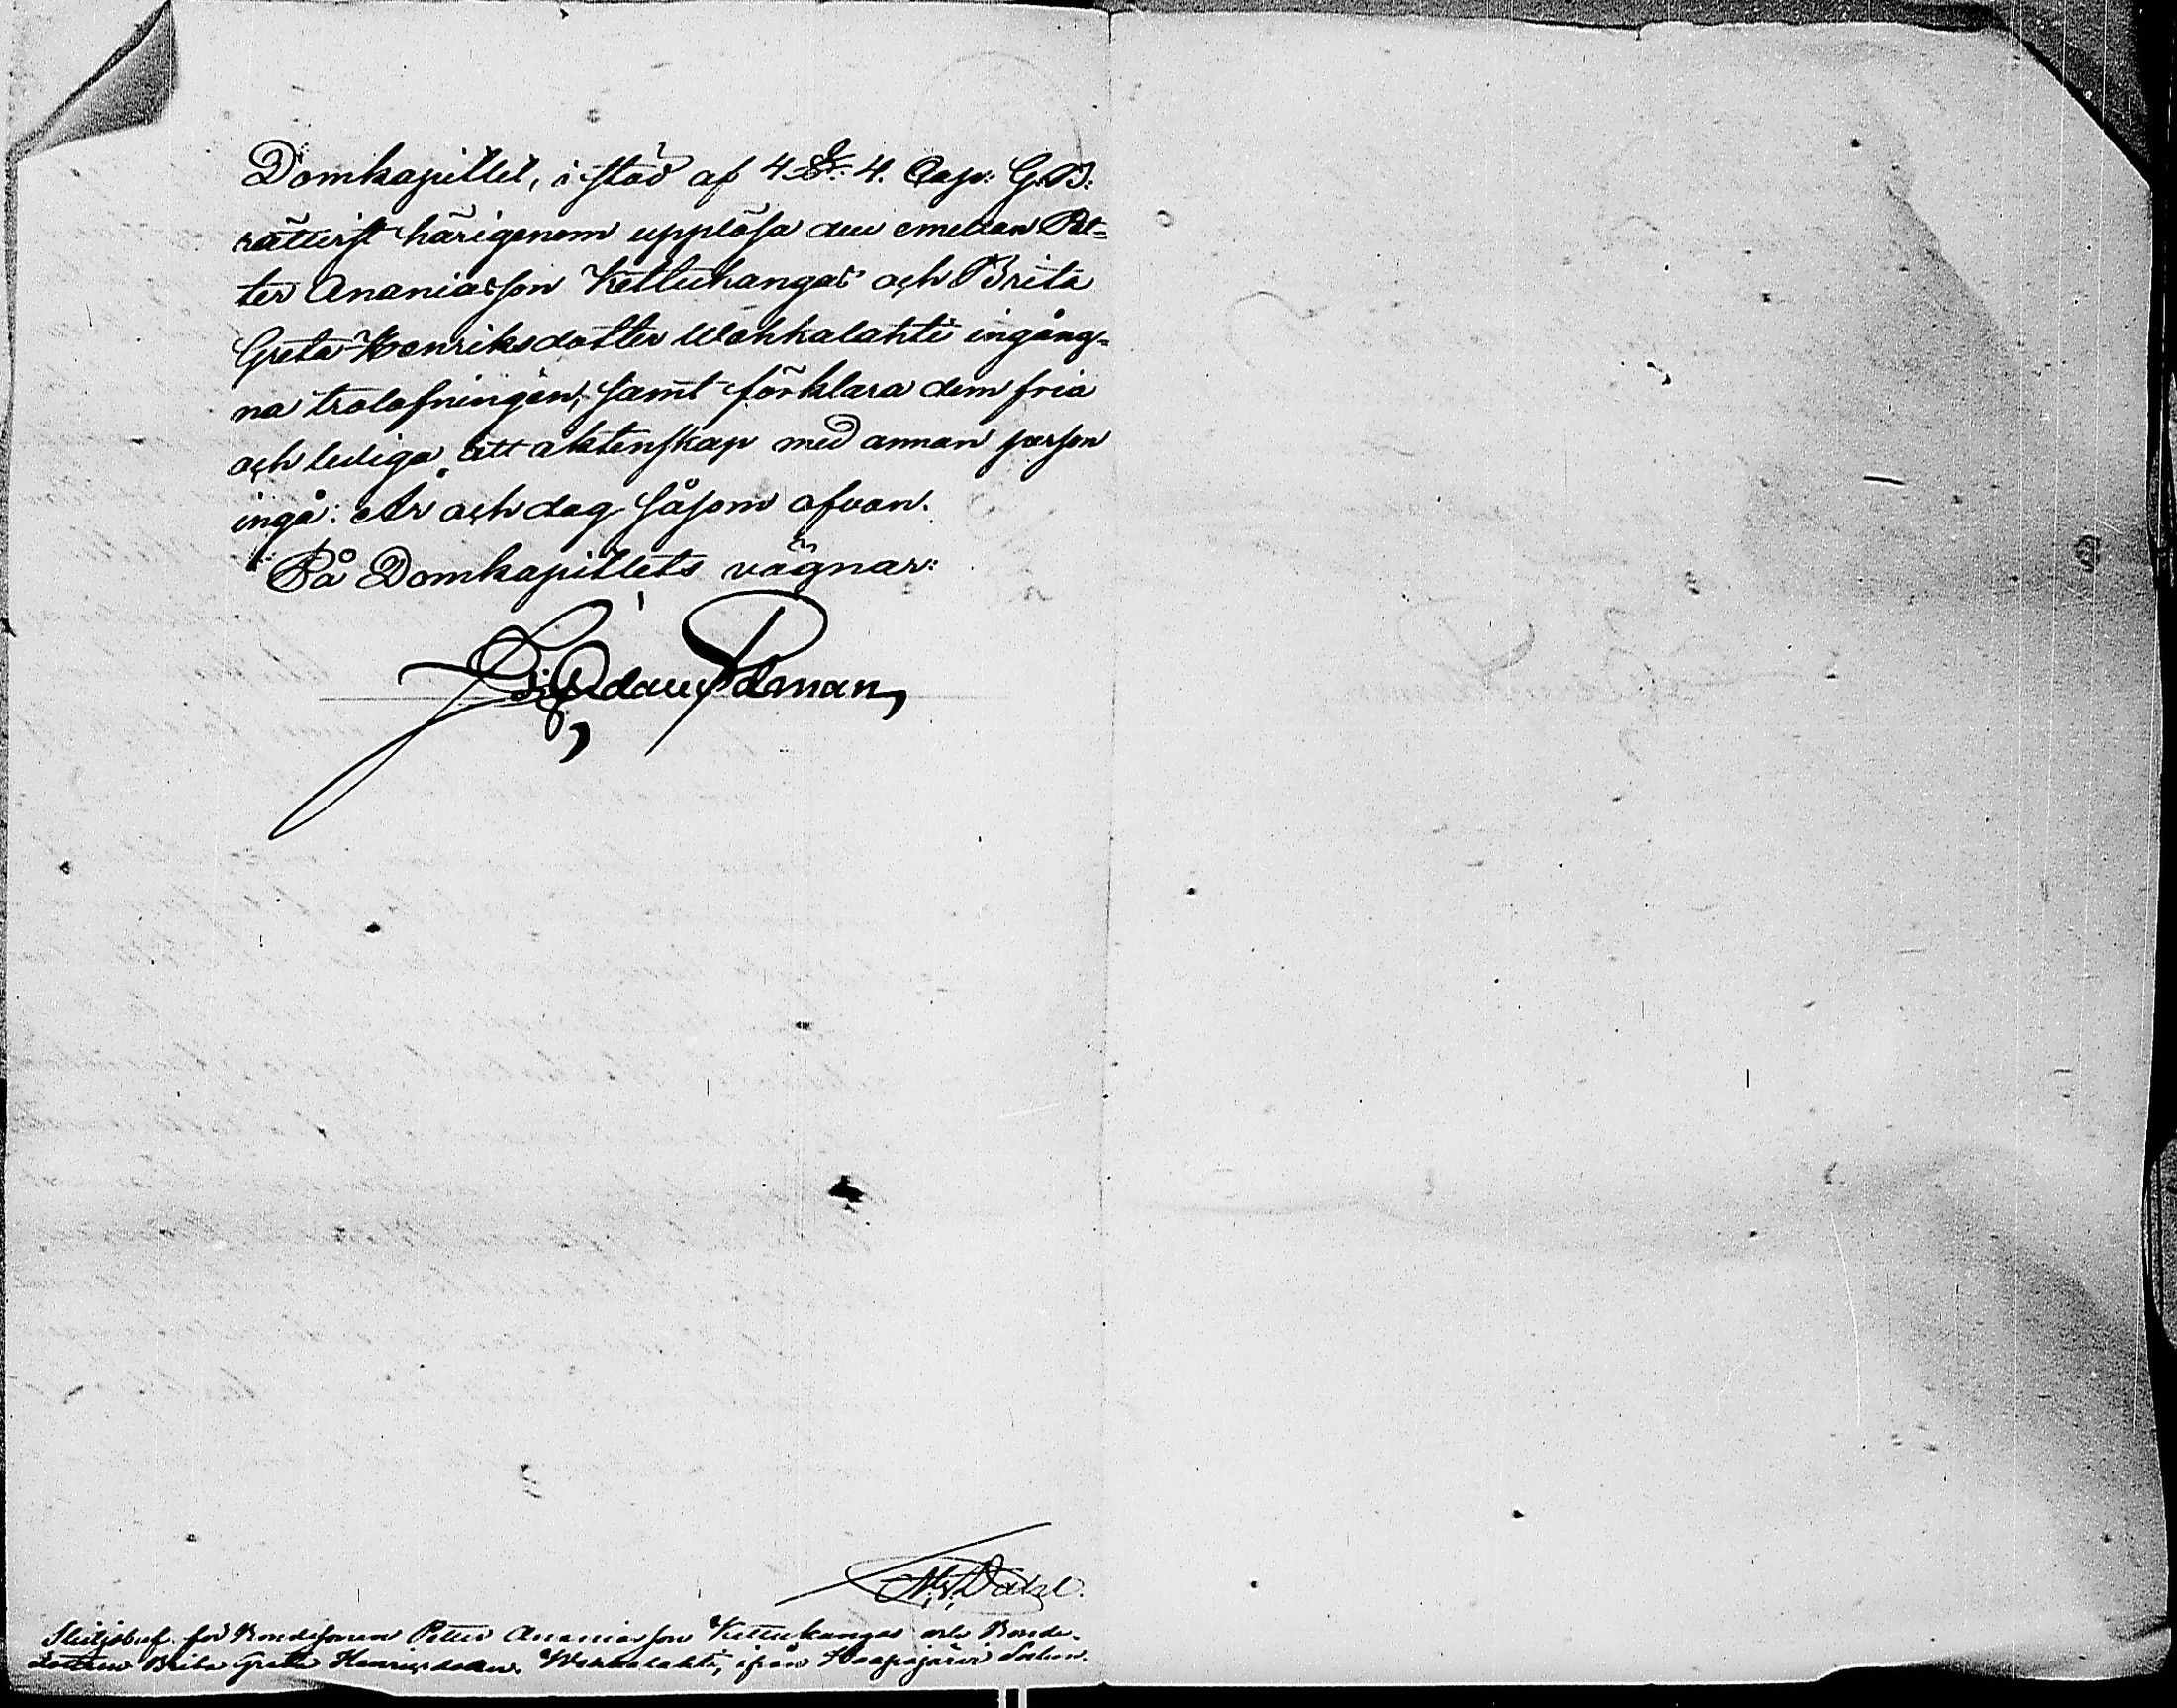 Domkapitlet, i stöd af 4 §. 4. Cap: G.B:
rättvist härigenom upplösa den emellan Pet-
ter Ananiasson Kettukangas och Brita
Greta Henriksdotter Wehkalahti ingång-
na trolofningen, samt förklara dem fria
och lediga att äktenskap med annan person
ingå. År och dag såsom ofvan.
På Domkapitlets vägnar:
Skiljobref för Bondesonen Petter Ananiasson Kettukangas och Bonde-
dottren Brita Greta Henriksdotter Wehkalahti, ifrån Haapajärvi Socken.